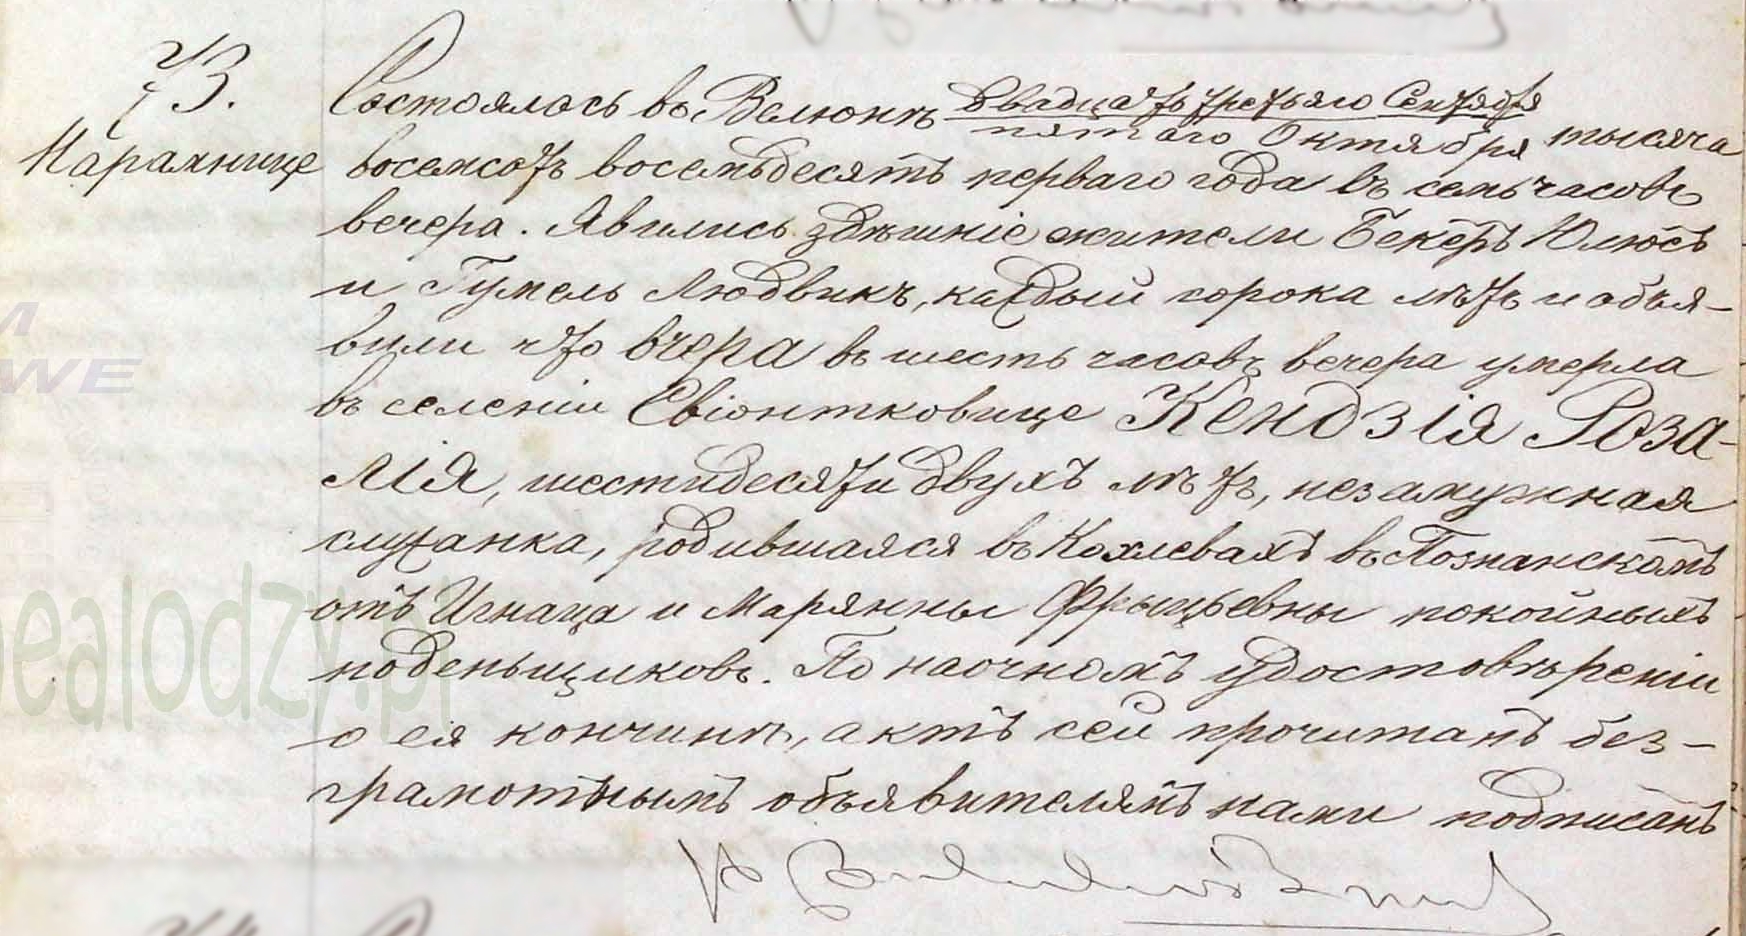 73.
Состоялось въ Велюнѣ двадцать третьяго Сентября
пятаго Октября тысяча
восемсотъ восемьдесятъ перваго года въ семь часовъ
вечера. Явились здѣшніе жители Бекеръ Юлюсъ
и Гумель Людвикъ, каждый сорока лѣтъ и объя-
вили что вчера въ шесть часовъ вечера умерла
въ селеніи Свіонтковице Кендзія Роза-
лія, шестидесяти двухъ лѣтъ, незамужная
служанка, родившаяся въ Кохлевахъ въ Познанскомъ
отъ Игнаца и Марянны покойныхъ
поденьщиковъ. По наочномъ удостовѣреніи
о ея кончинѣ, актъ сей прочитанъ без-
грамотнымъ объявителямъ нами подписанъ
nealodzy.pl